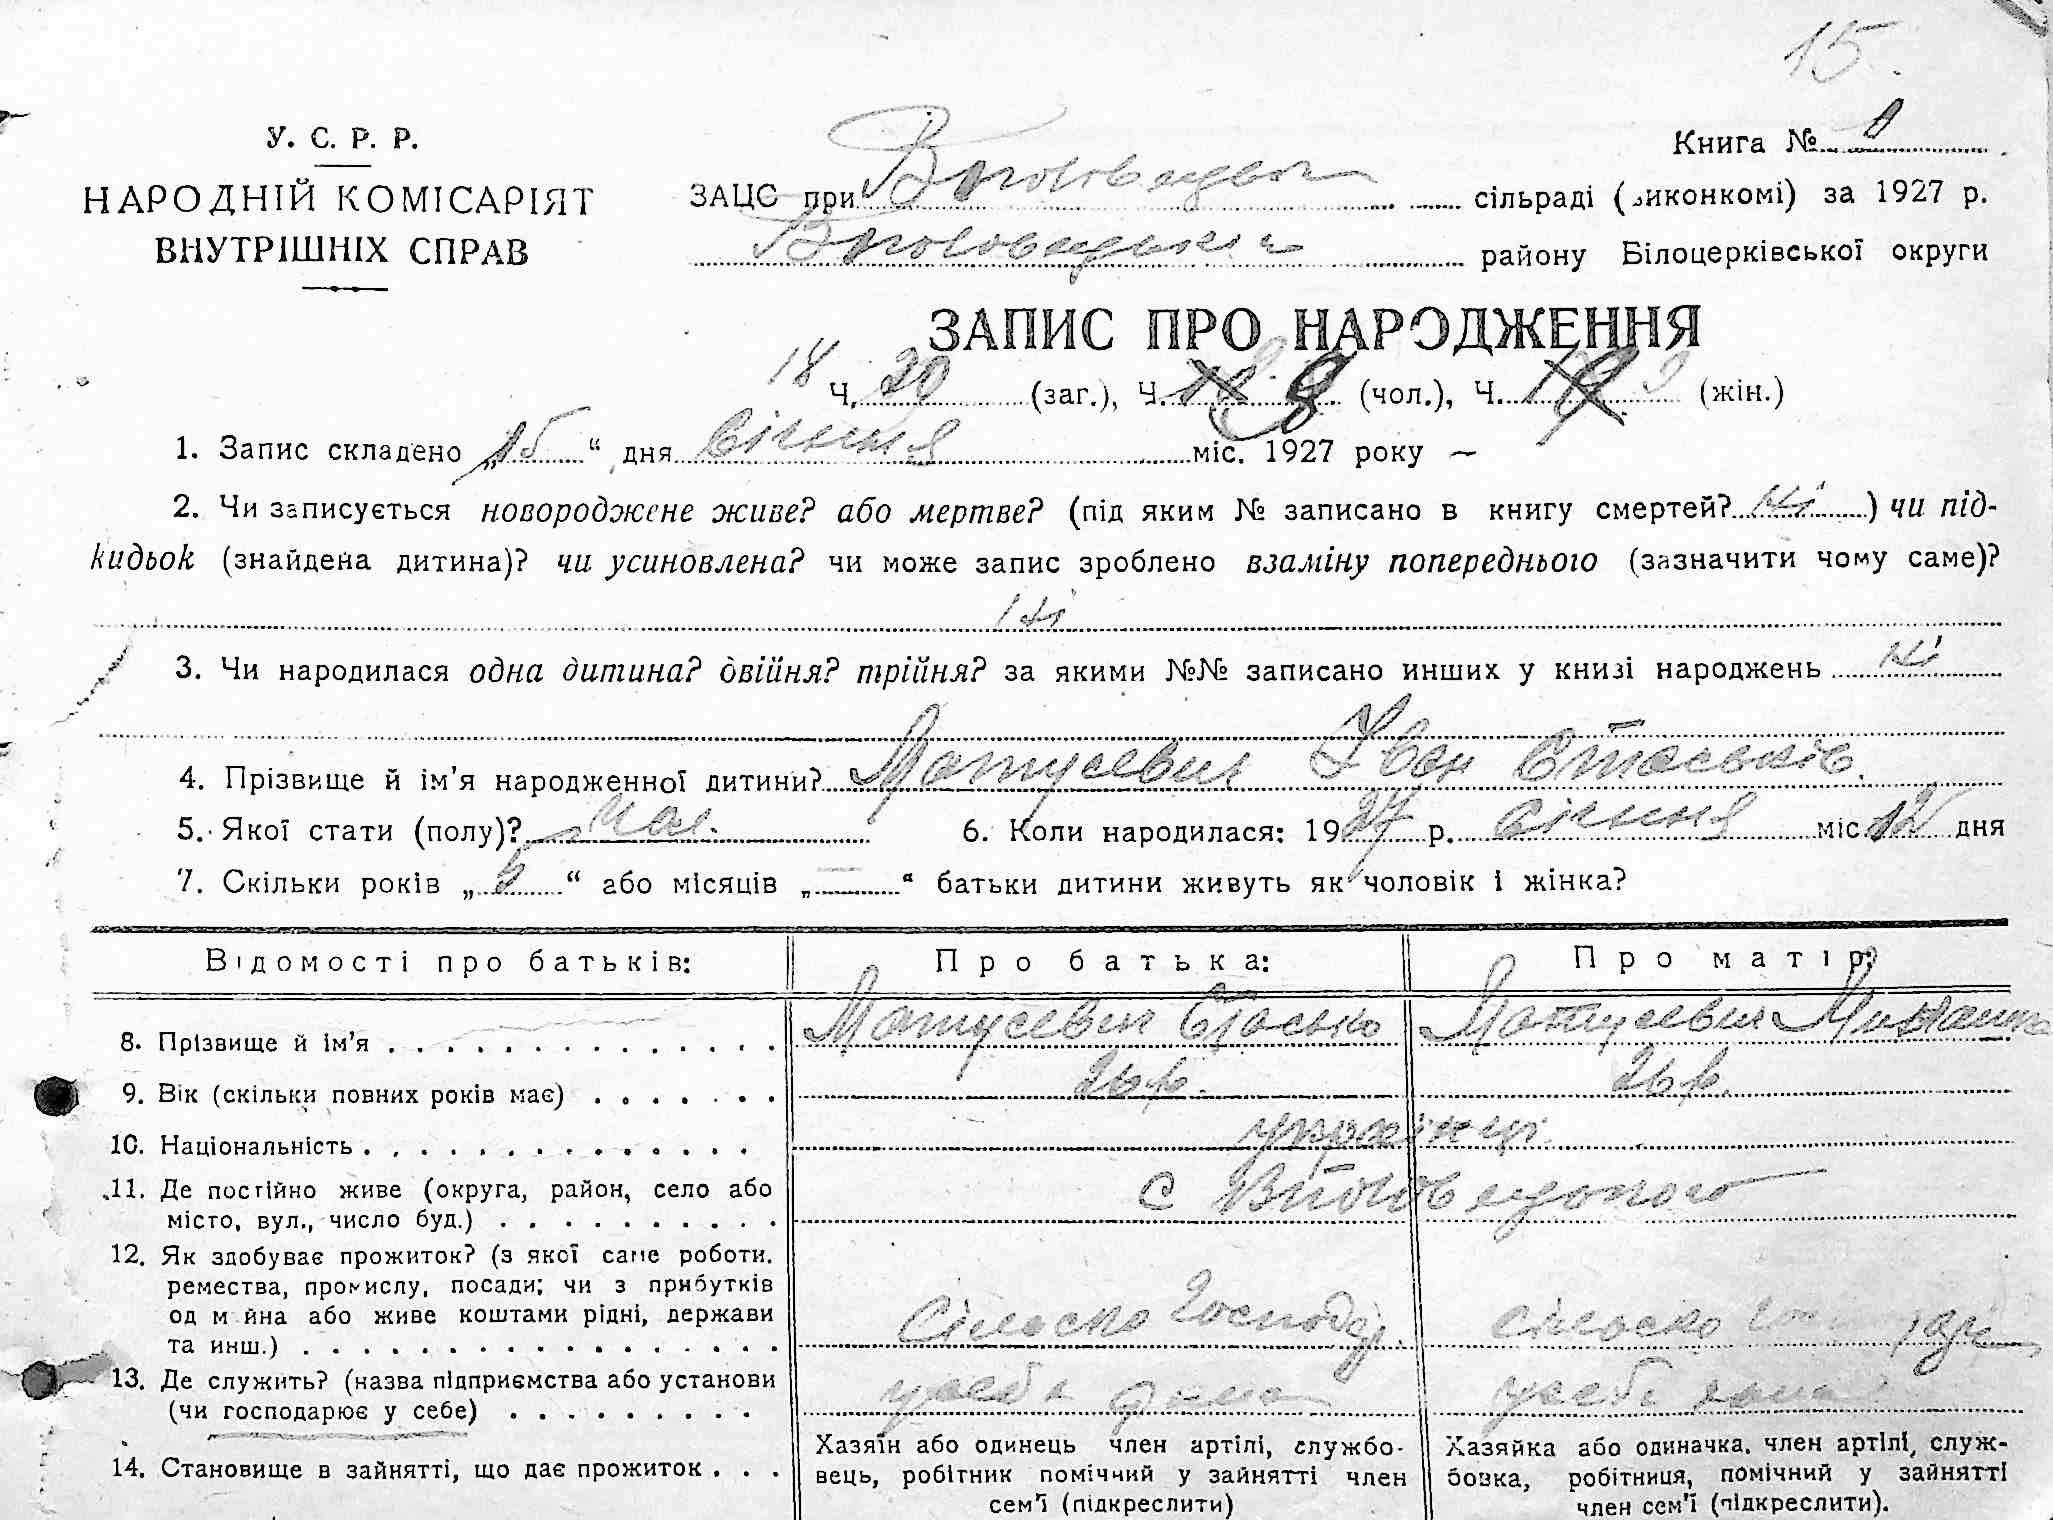 15.
У. С. Р. Р.
НАРОДНІЙ КОМІСАРІЯТ
ВНУТРІШНІХ СПРАВ
Книга №
ЗАЦС при сільраді (виконкомі) за 1927 р.
району Білоцерківської округи
ЗАПИС ПРО НАРОДЖЕННЯ
18 Ч. 20 (заг.), Ч. 8 (чол.), Ч. (жін.)
1. Запис складено „15“ дня Січня міс. 1927 року —
2. Чи записується новороджене живе? або мертве? (під яким № записано в книгу смертей? Ні) чи під-
кидьок (знайдена дитина)? чи усиновлена? чи може запис зроблено взаміну попереднього (зазначити чому саме)?
Ні
3. Чи народилася одна дитина? двійня? трійня? за якими №№ записано инших у книзі народжень Ні
4. Прізвище й ім’я народженної дитини? Матусевич Іван Стаськів.
5. Якої стати (полу)? чол. 6. Коли народилася: 1927 р. Січня міс 12 дня
7. Скільки років „ “ або місяців „—“ батьки дитини живуть як чоловік і жінка?
Відомості про батьків: Про батька: Про матір:
8. Прізвище й ім’я . . . . . . . . . . . . . . Матусевич Стасько Матусевич
9. Вік (скільки повних років має) . . . . . . . 26 р. 26 р.
10. Національність . . . . . . . . . . . . . . українці
11. Де постійно живе (округа, район, село або
місто, вул., число буд.) . . . . . . . . . . с
12. Як здобуває прожиток? (з якої саме роботи,
ремества, промислу, посади; чи з прибутків
од майна або живе коштами рідні, держави
та инш.) . . . . . . . . . . . . . . . . . Сільско Господар. сільско
13. Де служить? (назва підприємства або установи
(чи господарює у себе) . . . . . . . . . у себе дома у себе дома
14. Становище в зайнятті, що дає прожиток . . .
Хазяїн або одинець член артілі, службо-
вець, робітник помічний у зайнятті член
сем’ї (підкреслити)
Хазяйка або одиначка, член артілі, служ-
бовка, робітниця, помічний у зайнятті
член сем’ї (підкреслити).